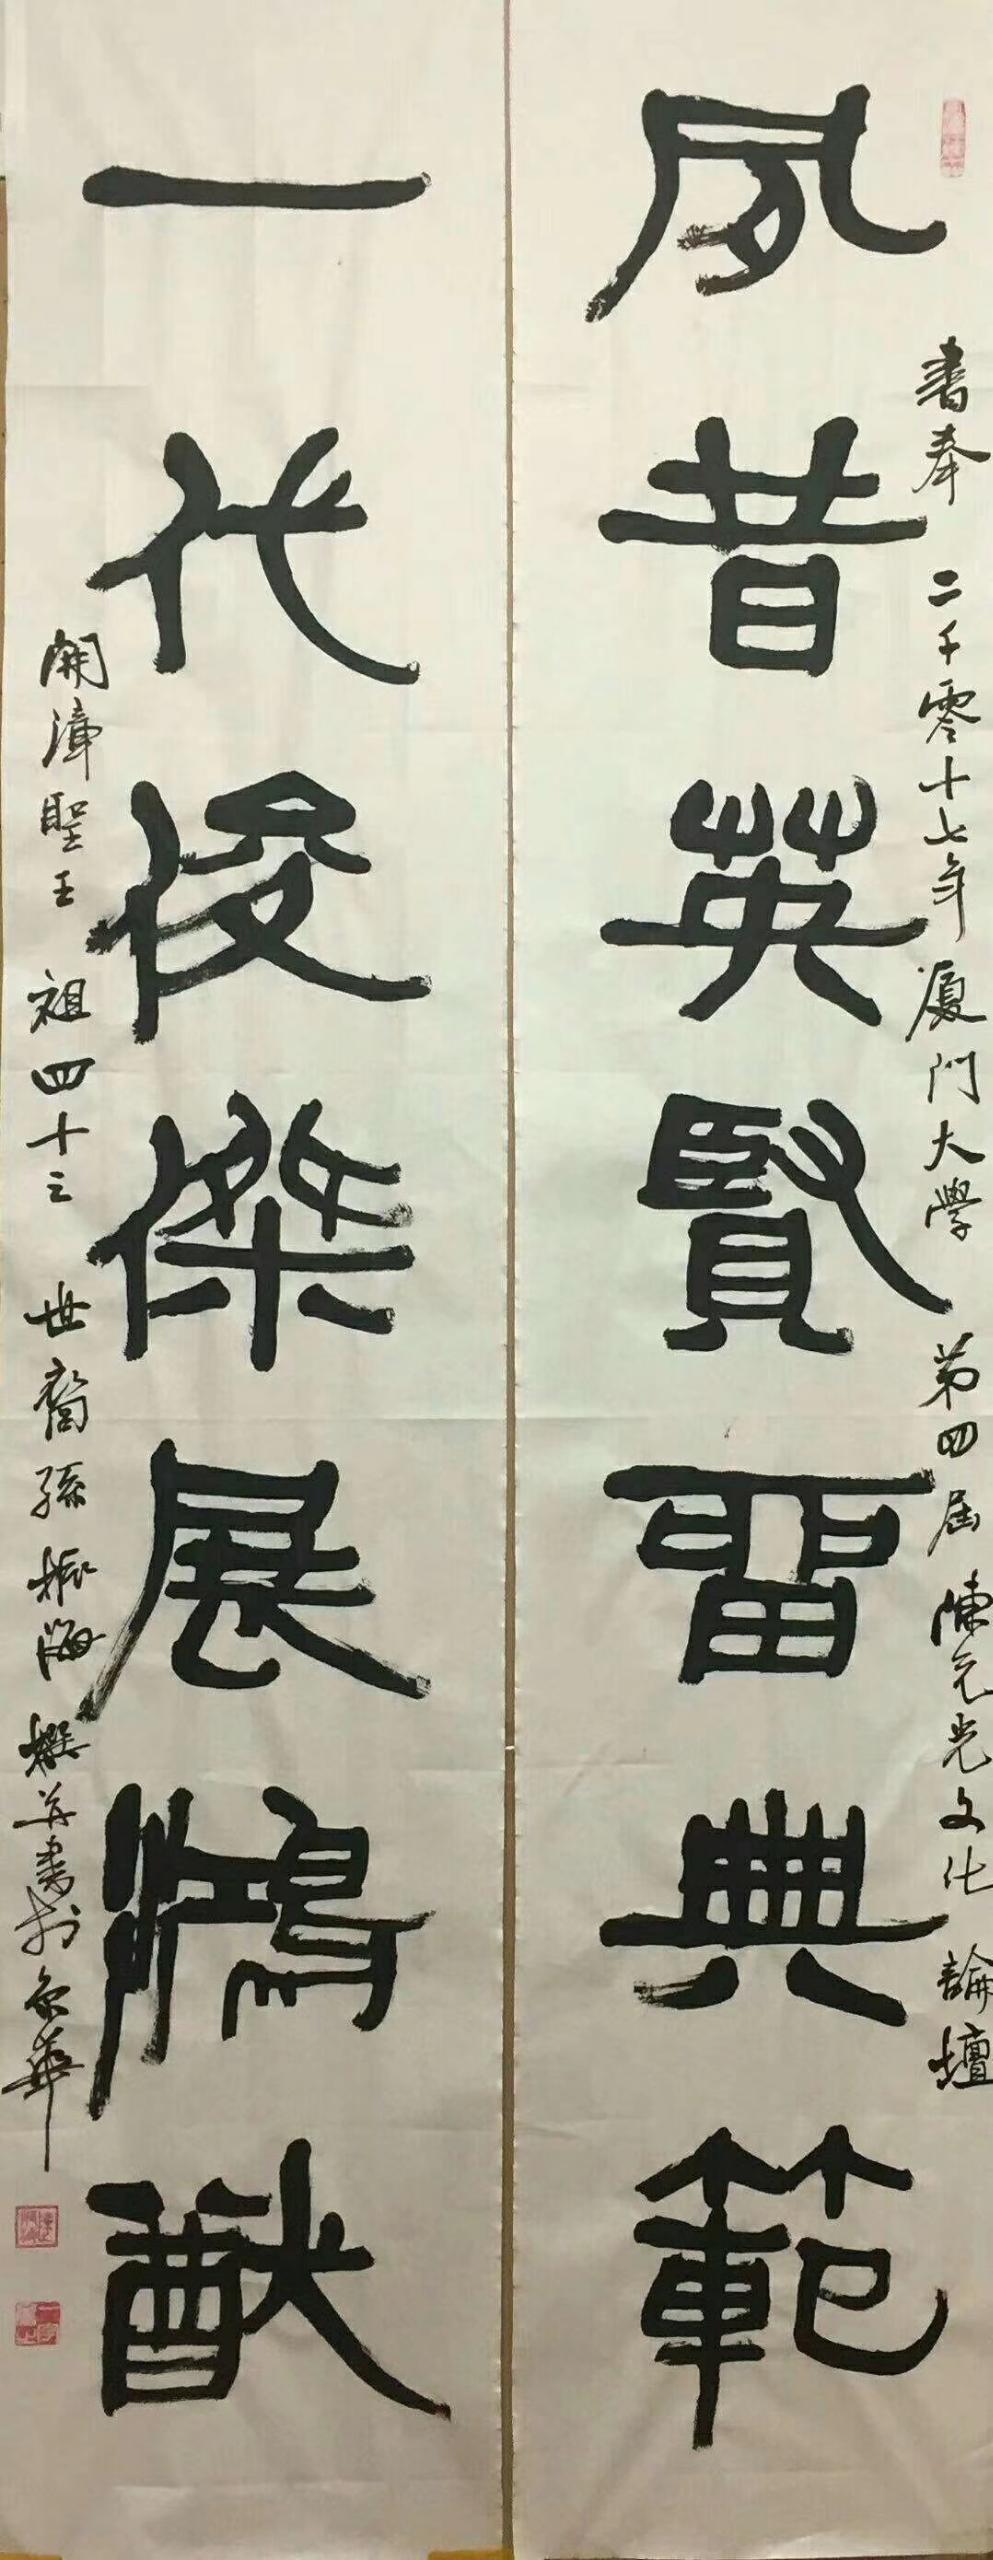 夙昔英賢留典範
書奉 二千零十七年 厦門大學 第四屆 陳元光文化 論壇
一代俊傑展鴻猷
開漳聖王 祖四十三 世裔孫 振海 撰并書於京華